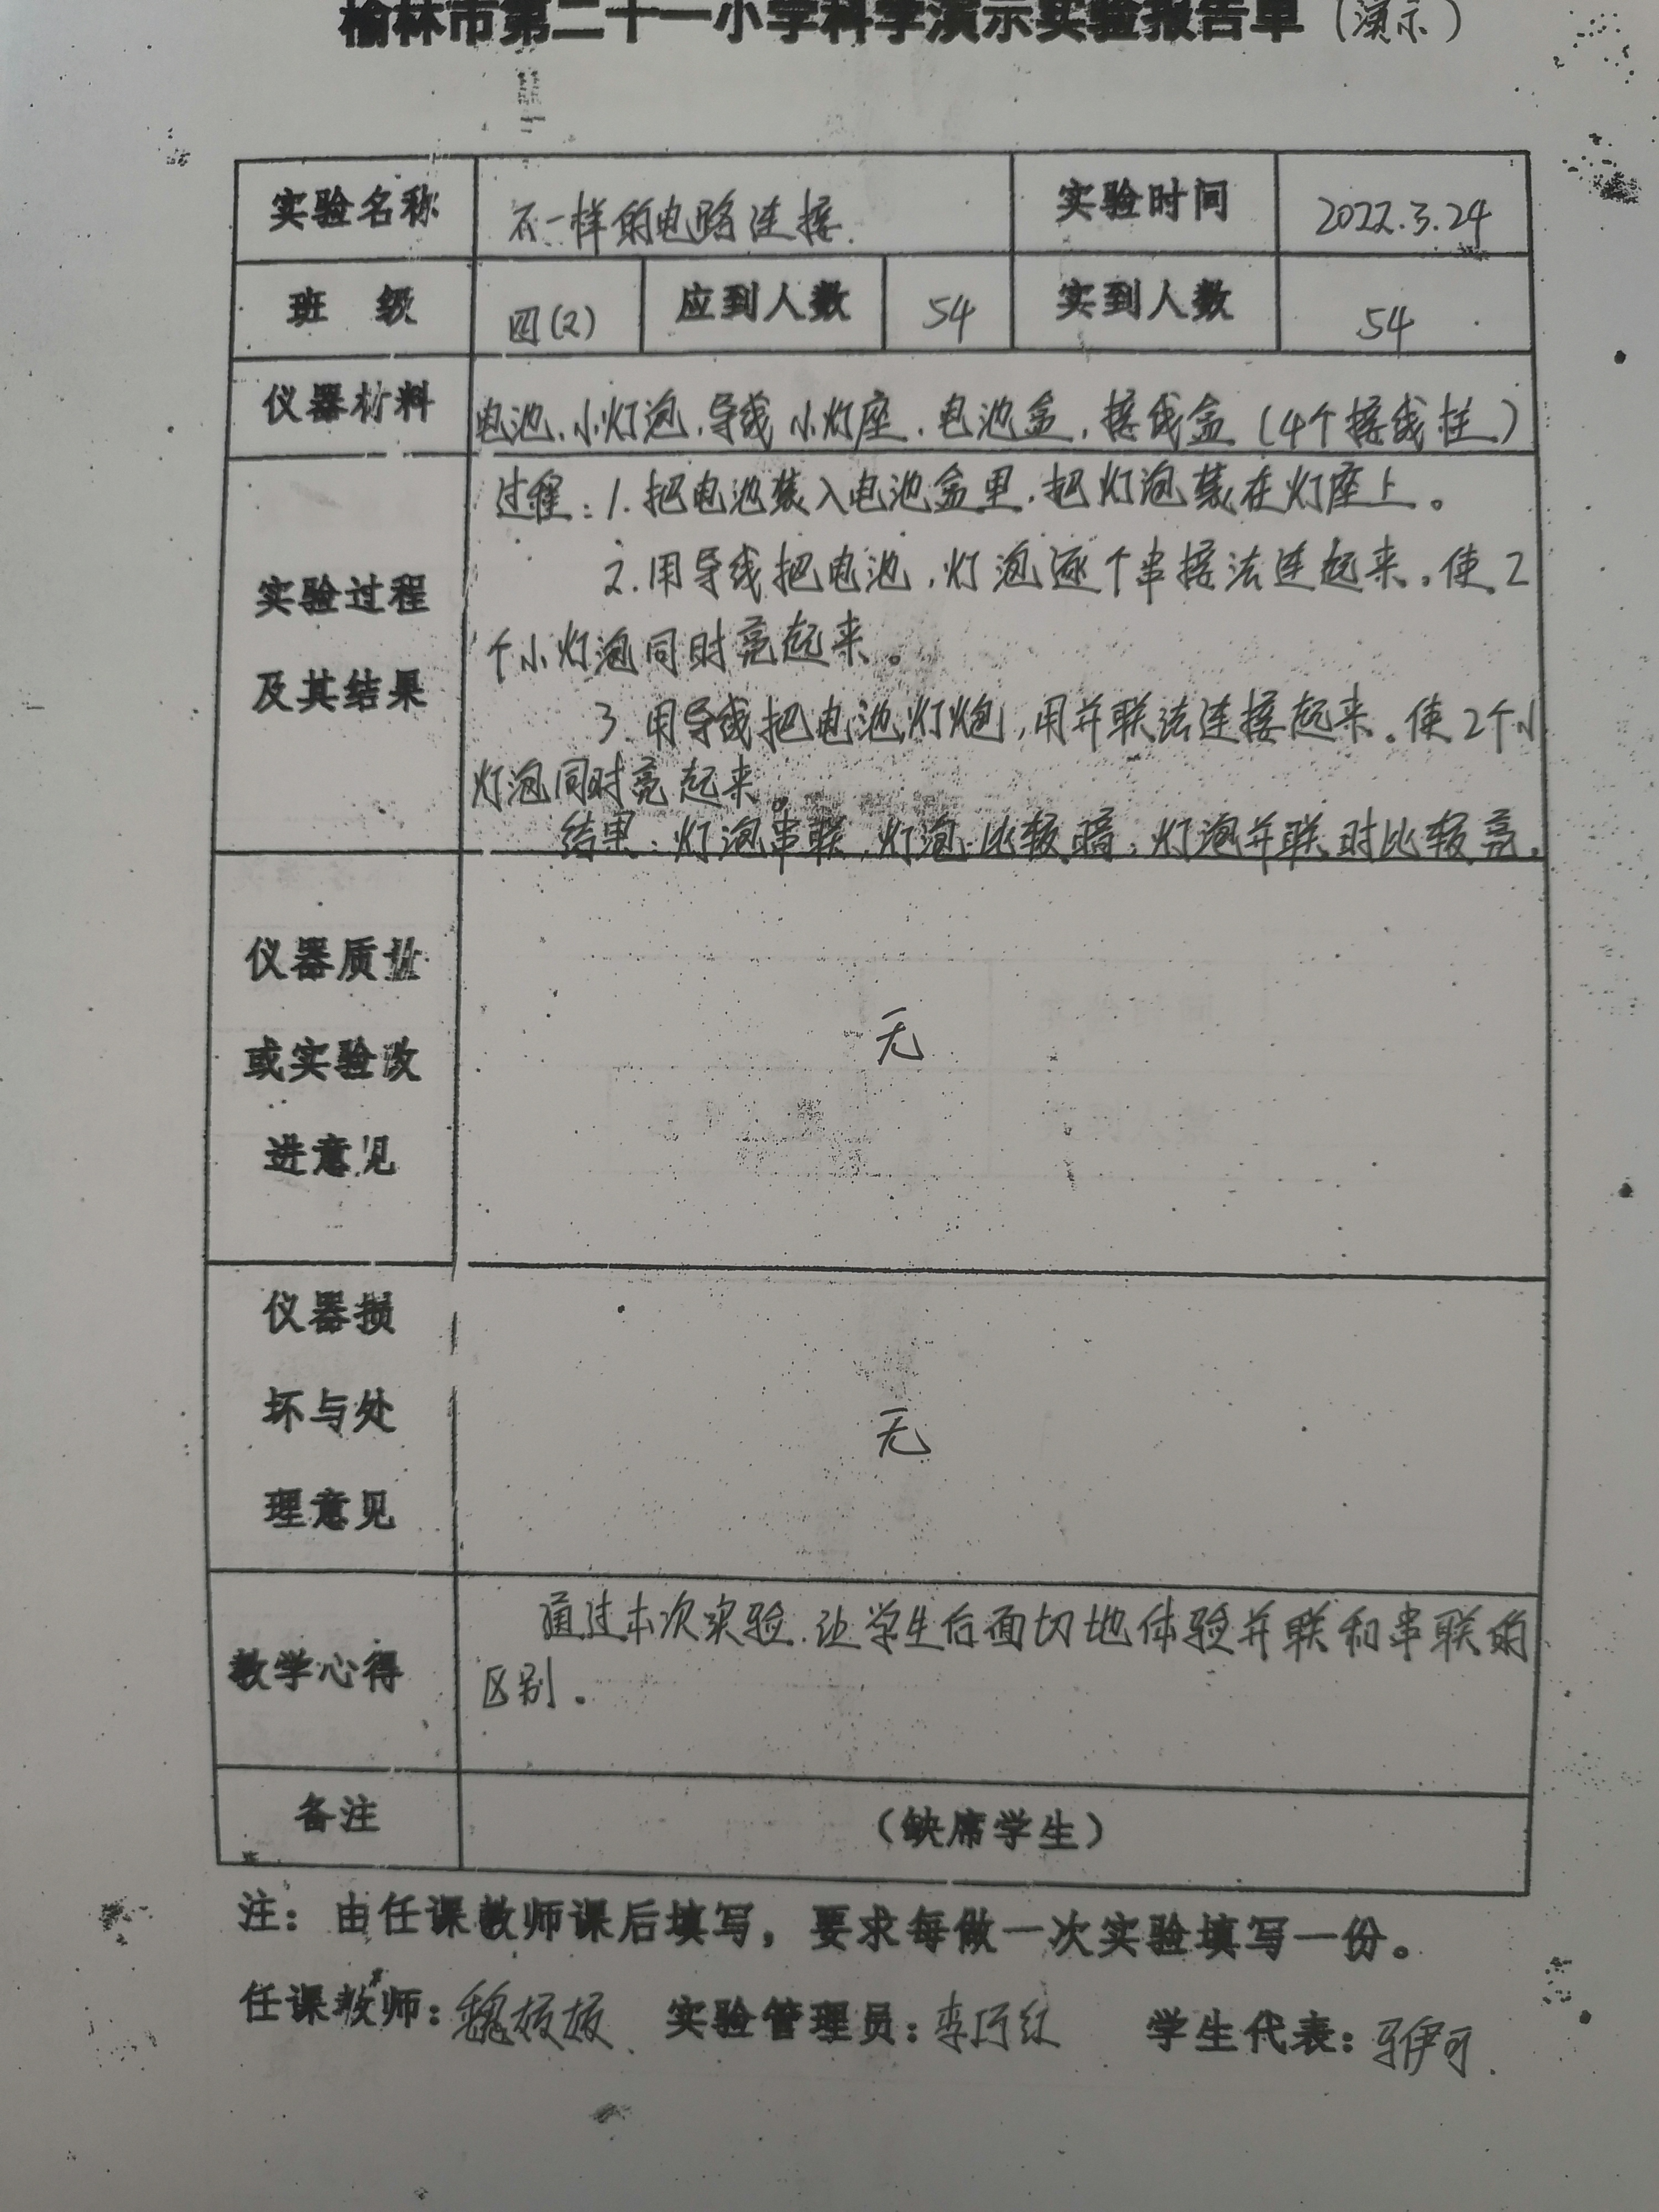 榆林市第二十一小学科学演示实验报告单（演示）
实验名称 不一样的电路连接. 实验时间 2022.3.24
班 级 四(2) 应到人数 54 实到人数 54
仪器材料 电池、小灯泡、导线 小灯座、电池盒、接线盒（4个接线柱）
实验过程及其结果
过程：1.把电池装入电池盒里，把灯泡装在灯座上。
2.用导线把电池，灯泡逐个串接法连起来。使2
个小灯泡同时亮起来。
3.用导线把电池灯炮，用并联法连接起来。使2个小
灯泡同时亮起来。
结果：灯泡串联，灯泡比较暗，灯泡并联时比较亮。
仪器质量
或实验改
进意见
无
仪器损
坏与处
理意见
无
教学心得
通过本次实验，让学生后面切地体验并联和串联的
区别。
备注 （缺席学生）
注：由任课教师课后填写，要求每做一次实验填写一份。
任课教师：魏 实验管理员：李巧红 学生代表：马伊可.